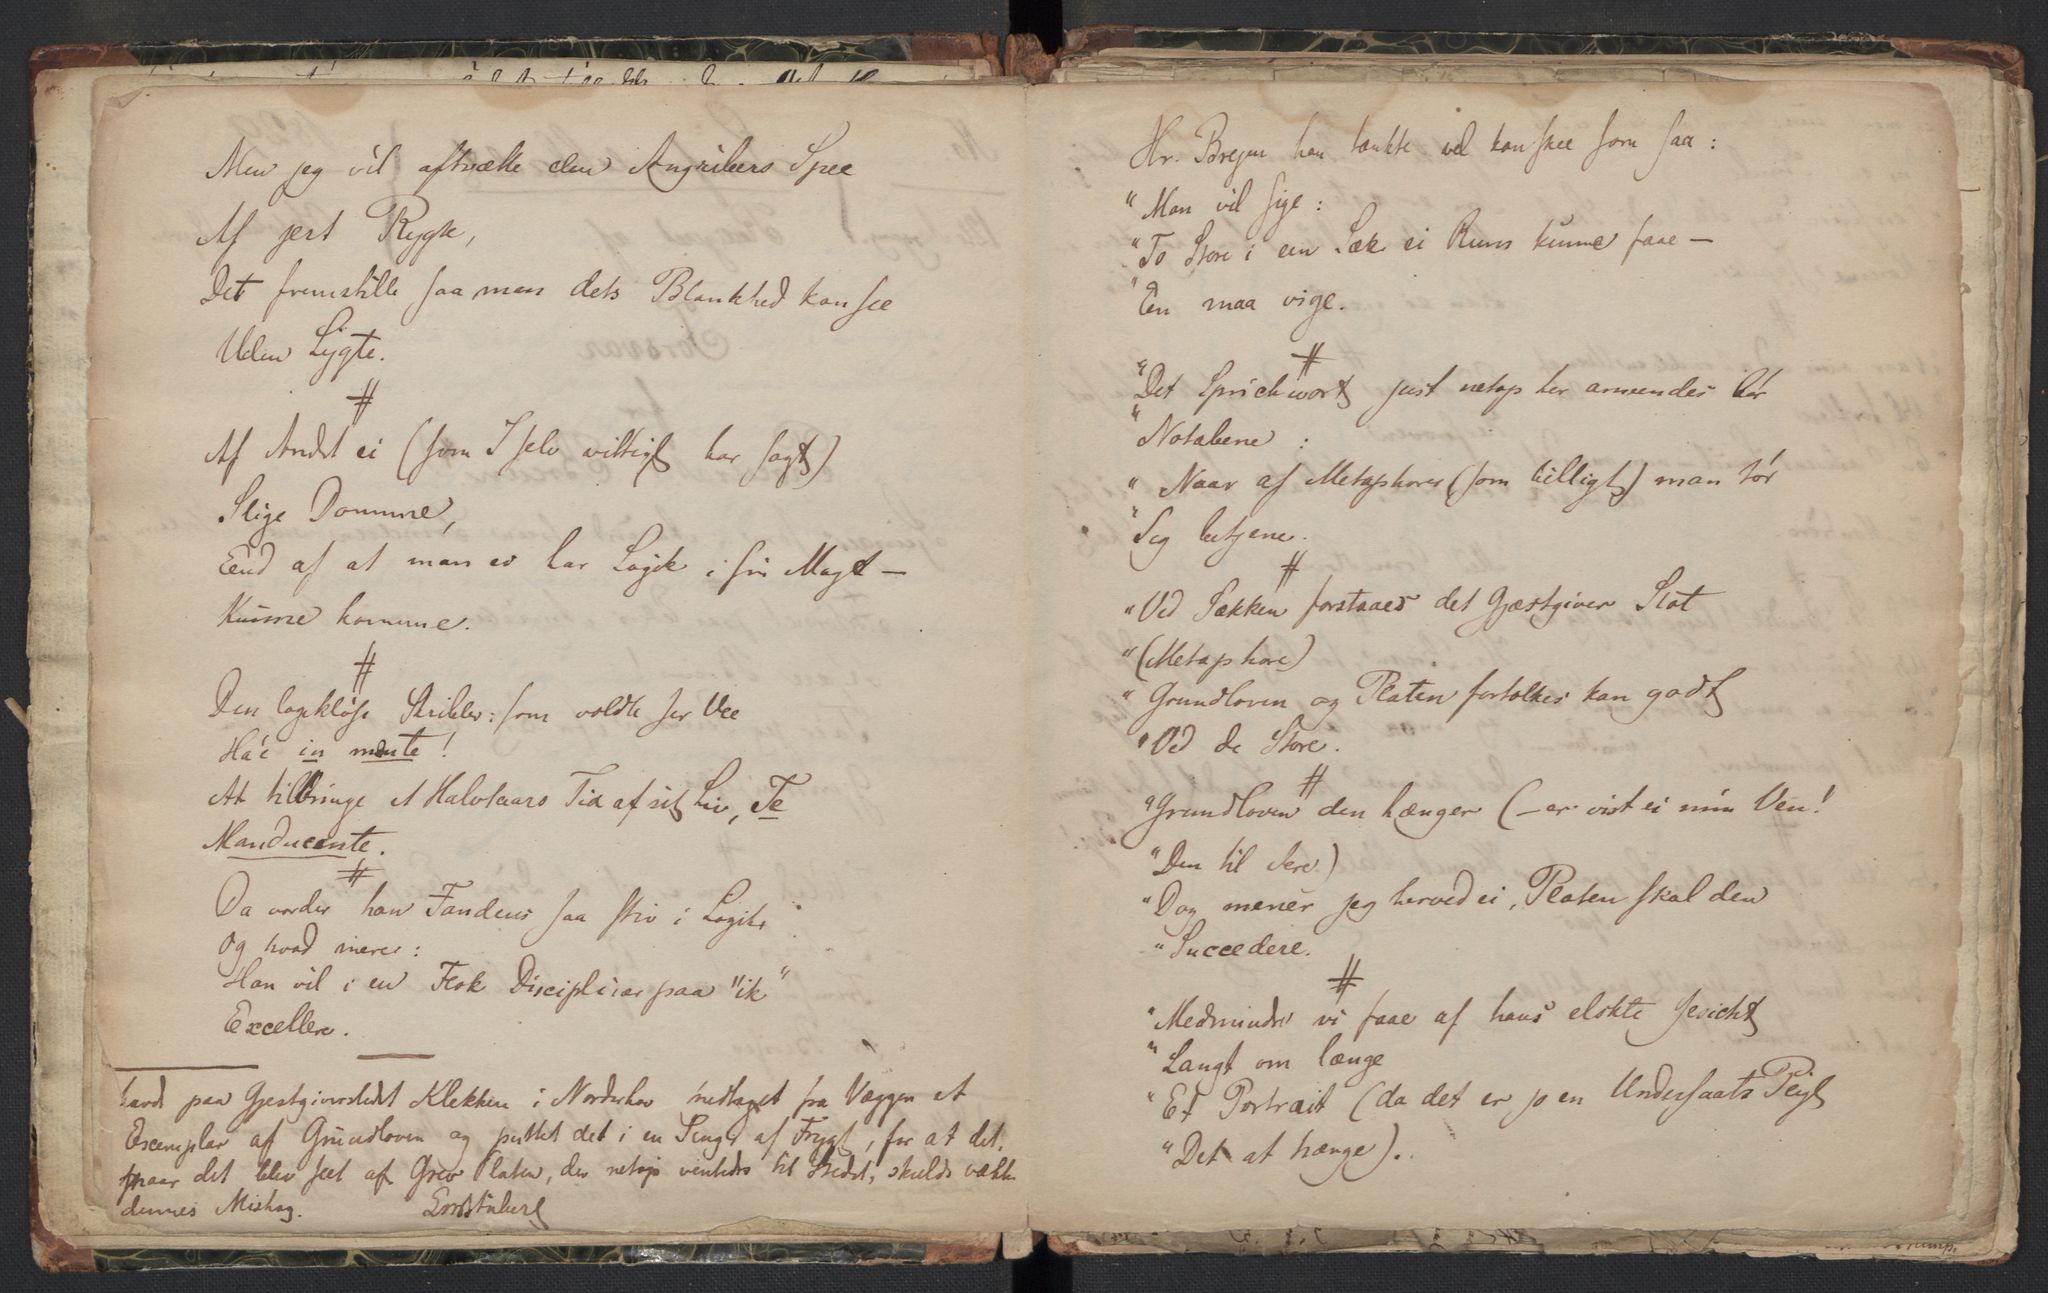 Men jeg vil aftrække den Angribers Spee
Af jert Rygte,
Det fremstille saa man dets Blankhed kan see
Uden Lygte.
#
Af Andet ei (som I selv vittigt har sagt)
Slige Domme,
End af at man ei har Logik i sin Magt —
Kunne komme.
#
Den logikløse Skribler: som voldte jer Vee
Ha'e in mente!
At tilbringe et Halvtaars Tid af sit Liv, Te
Manducente.
#
Da vorder han Fandens saa stiv i Logik
Og hvad mere:
Han vil i en Flok Discipliner paa "ik"
Excellere.
havde paa Gjestgiverstedet Klekken i Norderhov nedtaget fra Væggen et
Exemplar af Grundloven og puttet det i en Seng, af Frygt, for at det,
naar det blev seet af Grev Platen, der netop ventedes til Stedet, skulde vække
dennes Mishag.
Hr. Breyen han tænkte vel kanskee som saa:
"Man vil sige:
"To Store i een Sæk ei Rum kunne faae —
"En maa vige.
#
"Det Sprichwort just netop her anvendes bør
"Notabene:
"Naar af Metaphorer (som billigt) man tør
"Seg betjene.
#
"Ved Sækken forstaaes det Gjæstgiver Slot
"(Metaphore)
"Grundloven og Platen fortolkes kan godt
"Ved de Store.
#
"Grundloven den hænger (— er vist ei min Ven!
"Den til Ære)
"Dog mener jeg herved ei, Platen skal den
"Succedere.
#
"Medmindre vi faae af hans elskte Gesicht
"Langt om længe
"Et Portrait (da det er jo en Undersaats Pligt
"Det at hænge).